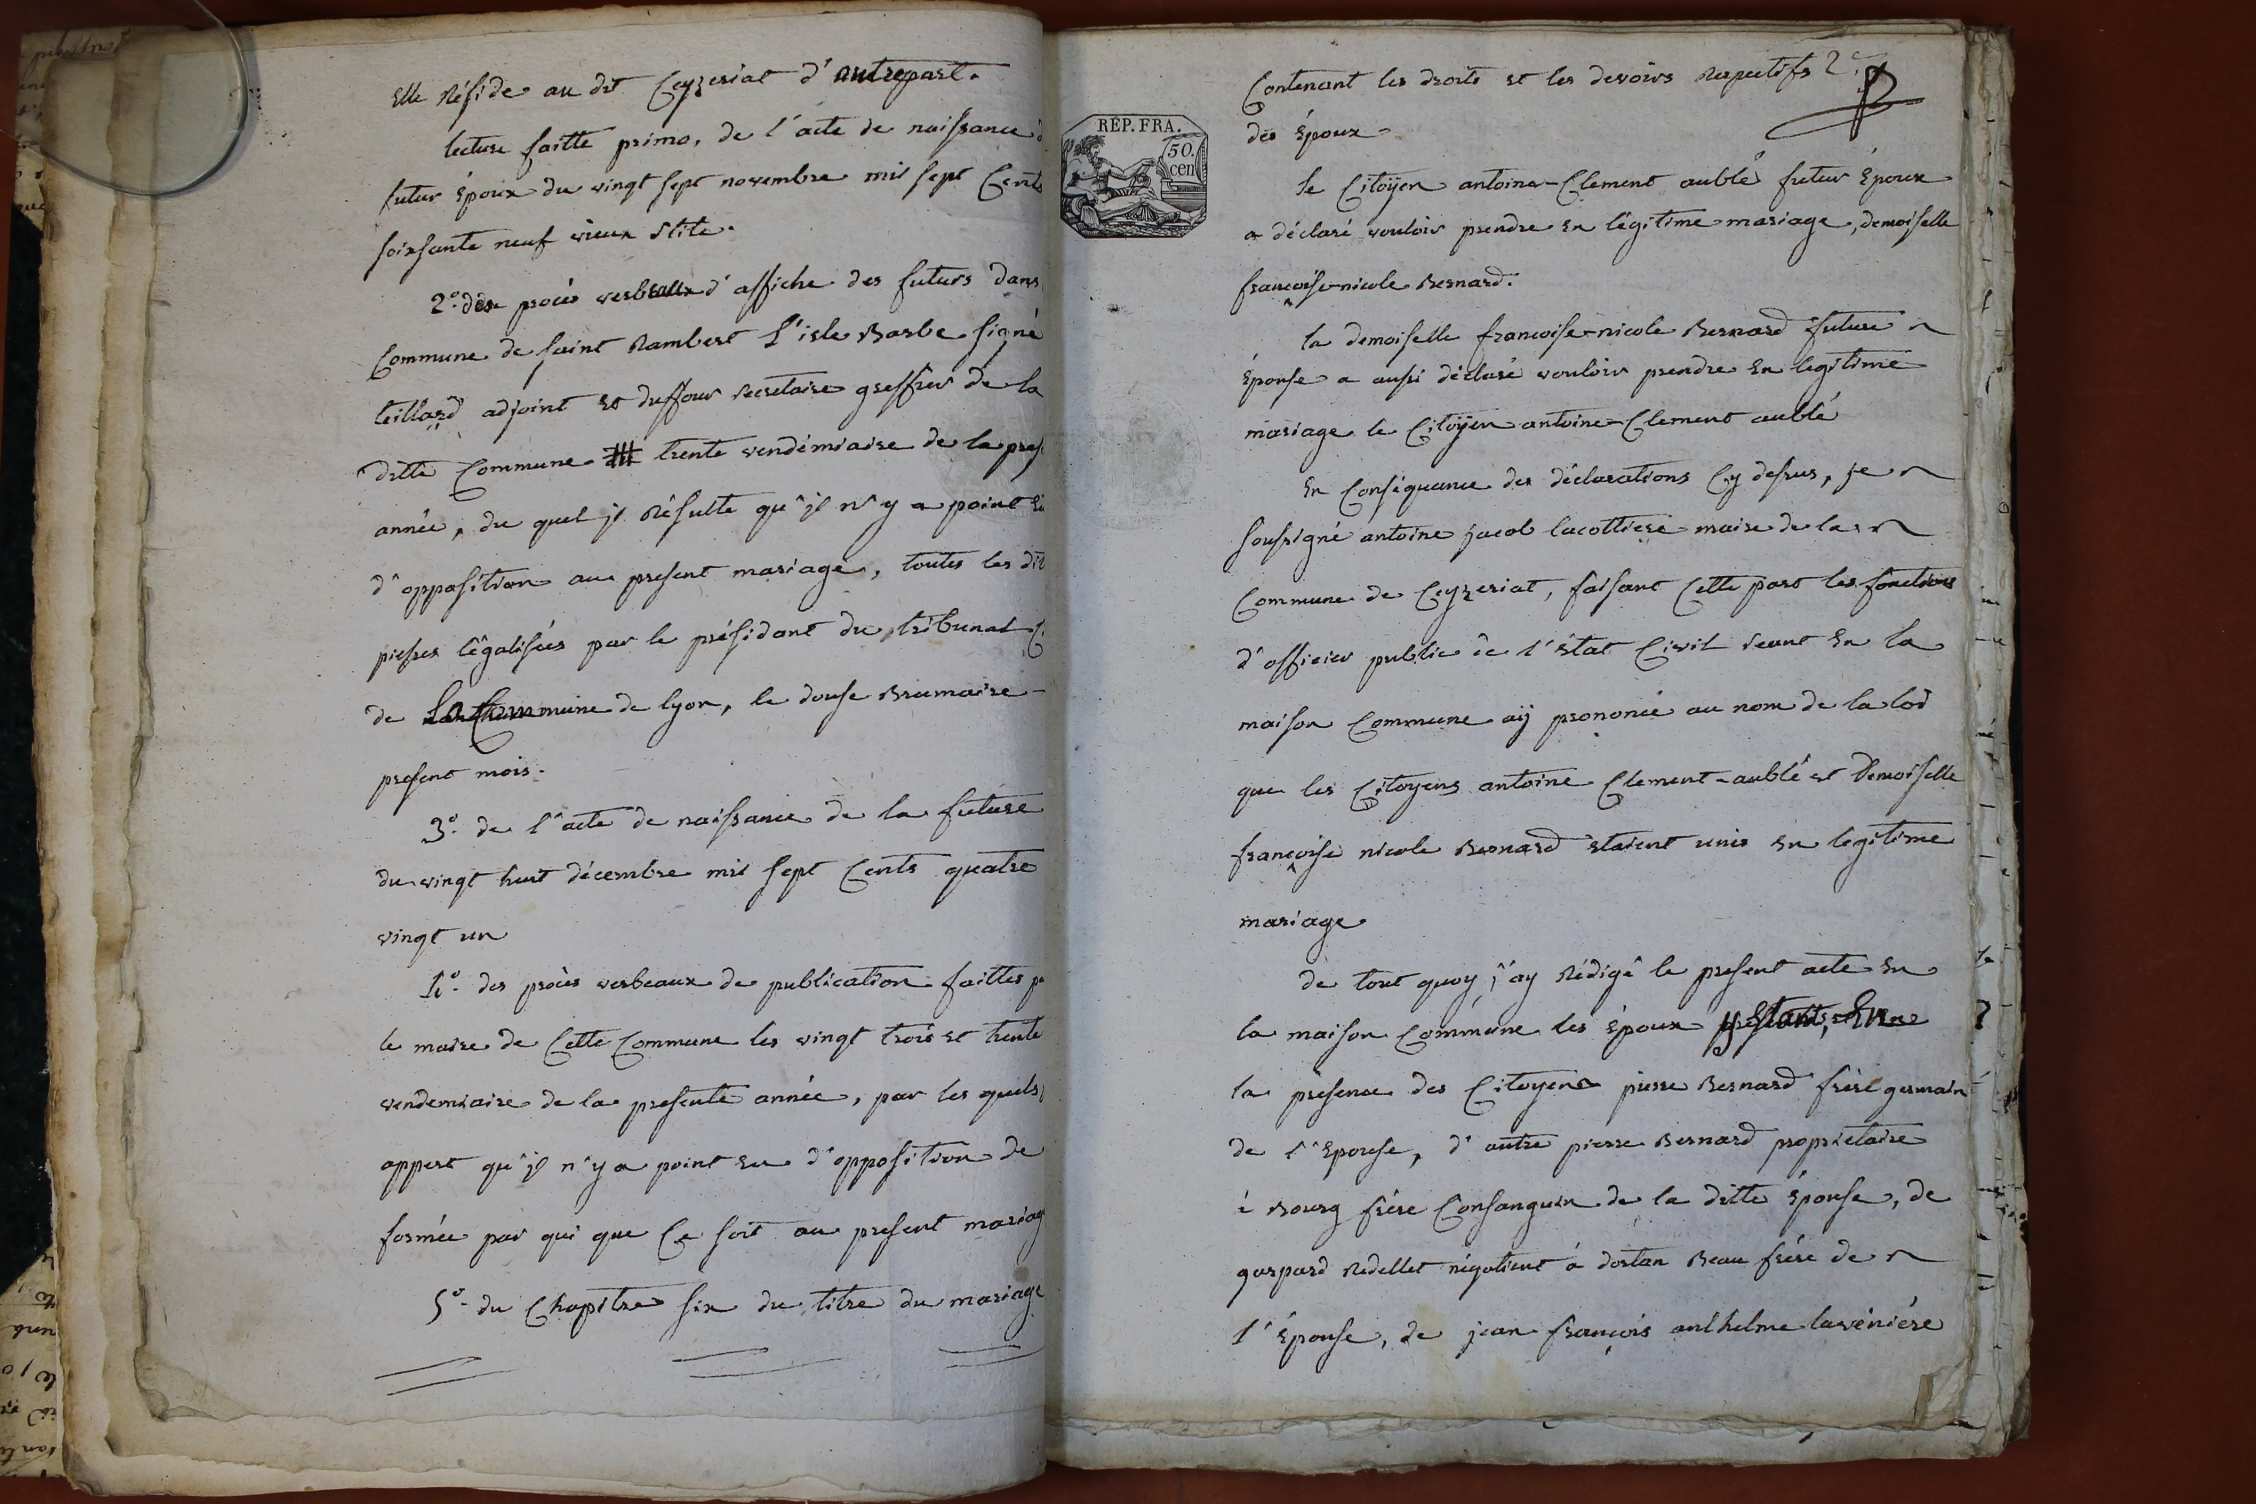 Elle Réside au dit Ceyzeriat d'autrepart.
lecture faitte primo, de l'acte de naissance
futur Époux du vingt sept novembre mil sept Cents
soixsante neuf vieux stile.
2.º des procès verbeaux d'affiche des futurs dans
Commune de saint Rambert L'isle Barbe signé
teillard adjoint et duffour secretaire greffier de la
ditte Commune trente vendémiaire de la pres
année, du quel jl Résulte qu'jl n'y a point eu
d'opposition au present mariage, toutes les dit
piesses légalisées par le présidant du tribunal
de La Commune de lyon, le douse Brumaire
present mois.
3.º de l'acte de naissance de la future
du vingt huit décembre mil sept Cents quatre
vingt un
4.º des procès verbeaux de publication faittes p
le maire de Cette Commune les vingt trois et trente
vendemiaire de la presente année, par les quels
appert qu'jl n'y a point eu d'opposition de
formée par qui que Ce soit au present mariage
5.º du Chapitre six du titre du mariage
Contenant les droits et les devoirs Respectifs 2e
des Époux
RÉP. FRA.
50.
cen
le Citoÿen antoine-Clement aublé futur Époux
a déclaré vouloir prendre en légitime mariage, demoiselle
francoise-nicole Bernard.
la demoiselle francoise-nicole Bernard future
Épouse a aussi déclaré vouloir prendre en legitime
mariage le Citoÿen antoine-Clement aublé
En Conséquance des déclarations Cy dessus, je
soussigné antoine jacob lacottiere maire de la
Commune de Ceyzeriat, faisant Cette part les fonctions
d'officier public de l'état Civil seant en la
maison Commune aÿ prononcé au nom de la loi
que les Citoyens antoine Clement-aublé et Demoiselle
francoise nicole Bernard étaient unis en legitime
mariage
de tout quoy j'ay Rédigé le present acte en
la maison Commune les époux y Etant, En
la présence des Citoyens pierre Bernard frère germain
de l'Epouse, d'autre pierre Bernard proprietaire
à Bourg frère Consanguin de la ditte épouse, de
gaspard Redellet négotient à dortan Beau frère de
l'Épouse, de jean françois anthelme lavénière